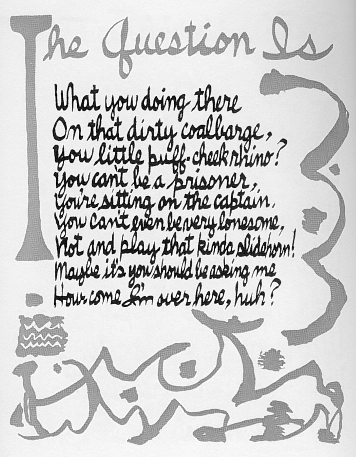 The Question Is
What you doing there
On that dirty coalbarge,
You little puff-cheek rhino?
You can't be a prisoner,
You're sitting on the captain.
You can't even be very lonesome,
Not and play that kinda slidehorn!
Maybe it's you should be asking me
How come I'm over here, huh?